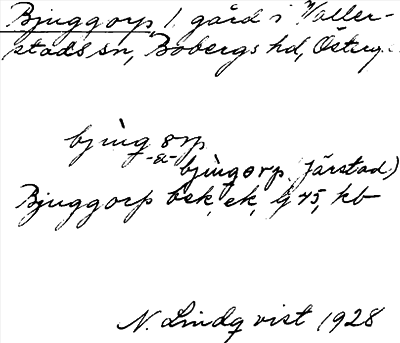 Bjuggorp, 1 gård i Waller-
stads sn, Bobergs hd, Österg.
bjùng orp
-o-
bjùngorp (Järstad)
Bjuggorp bsk, ek, G 45, kb
N. Lindqvist 1928